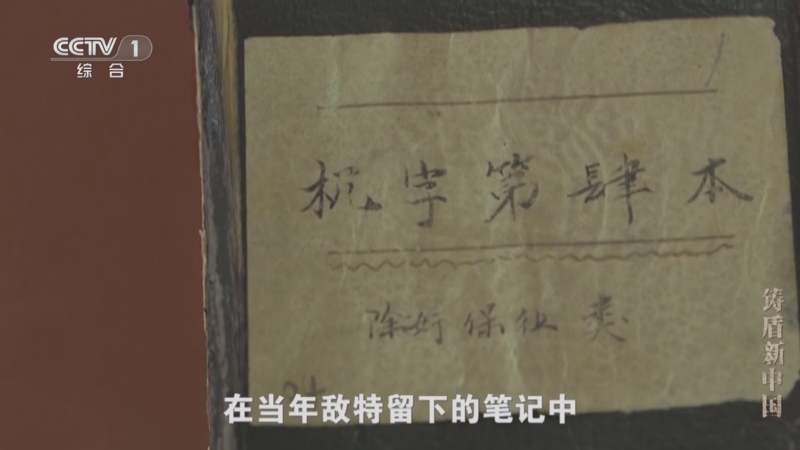 CCTV 1
综合
机字第肆本
除奸保征类
铸盾新中国
在当年敌特留下的笔记中